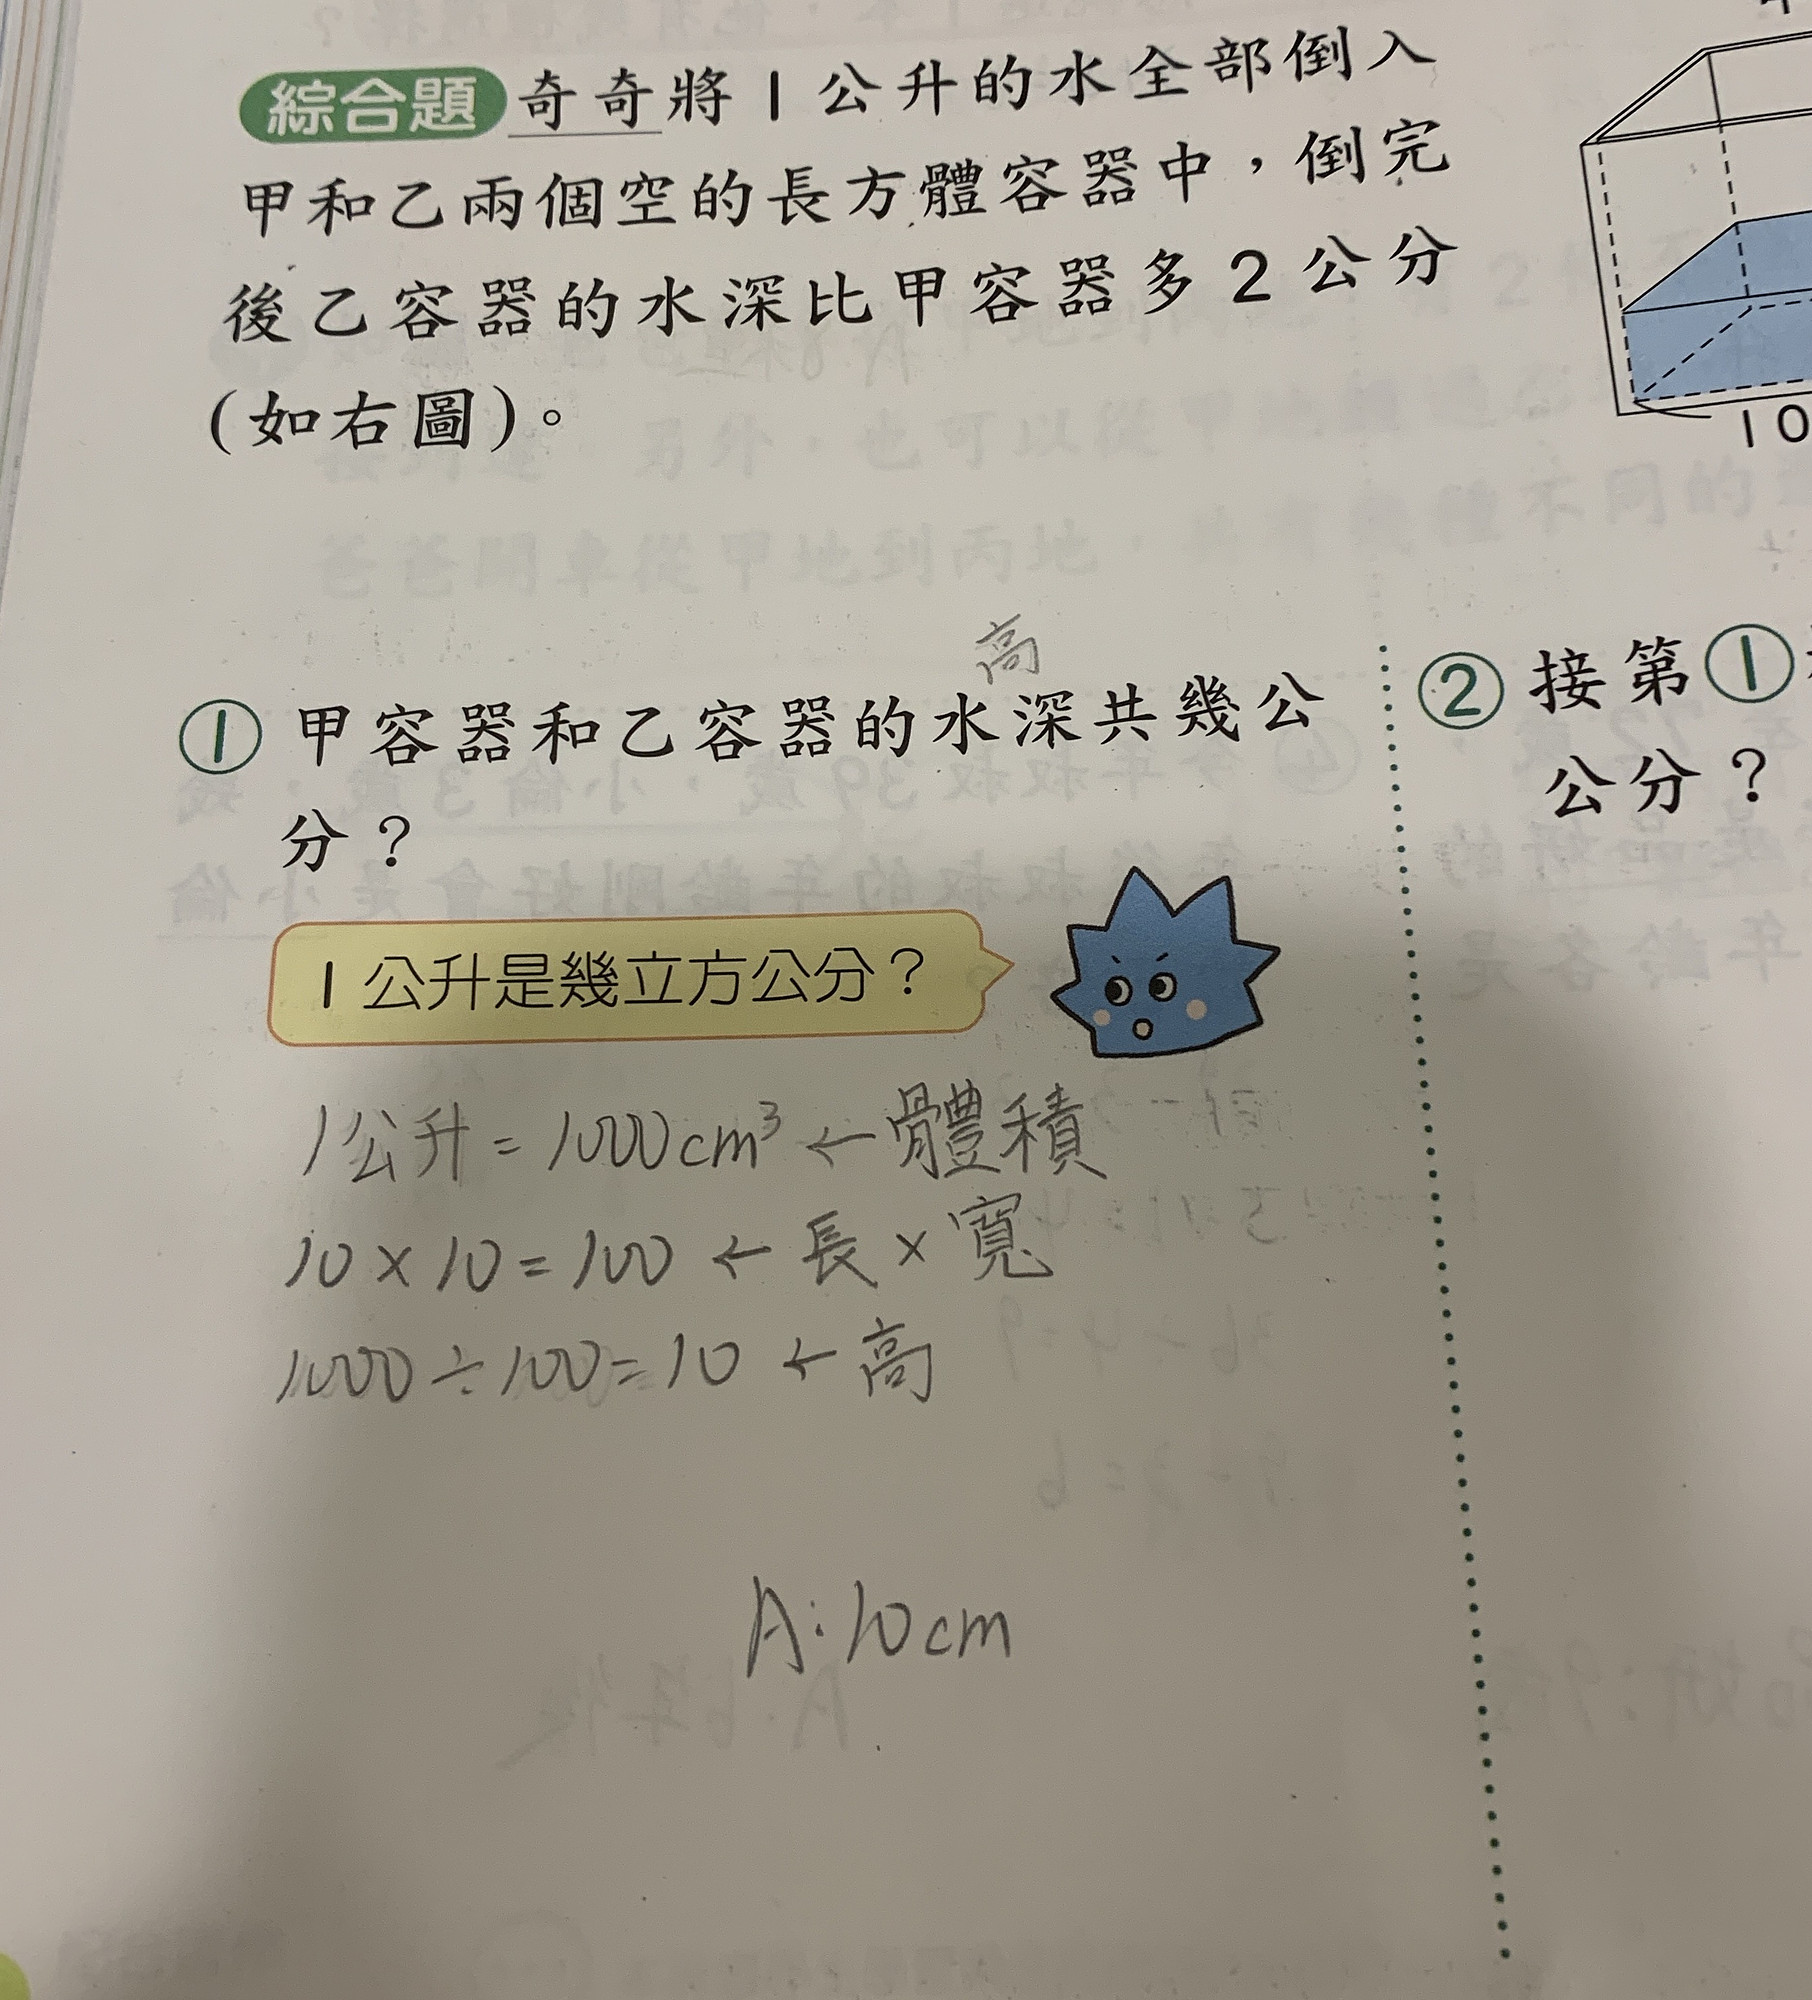 綜合題 奇奇將1公升的水全部倒入
甲和乙兩個空的長方體容器中，倒完
後乙容器的水深比甲容器多2公分
(如右圖)。
10
高
① 甲容器和乙容器的水深共幾公
分？
1公升是幾立方公分？
1公升=1000cm³←體積
10×10=100←長×寬
1000÷100=10←高
A:10cm
② 接第①
公分？